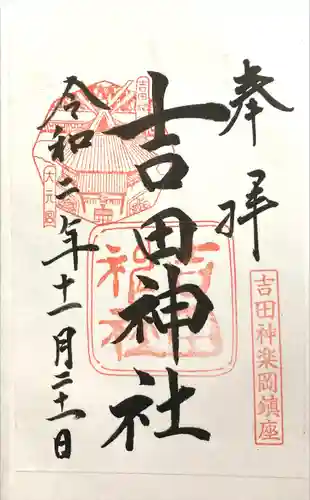 奉拝
吉田神楽岡鎮座
吉田神社
吉田神社
大元宮
令和二年十一月二十一日